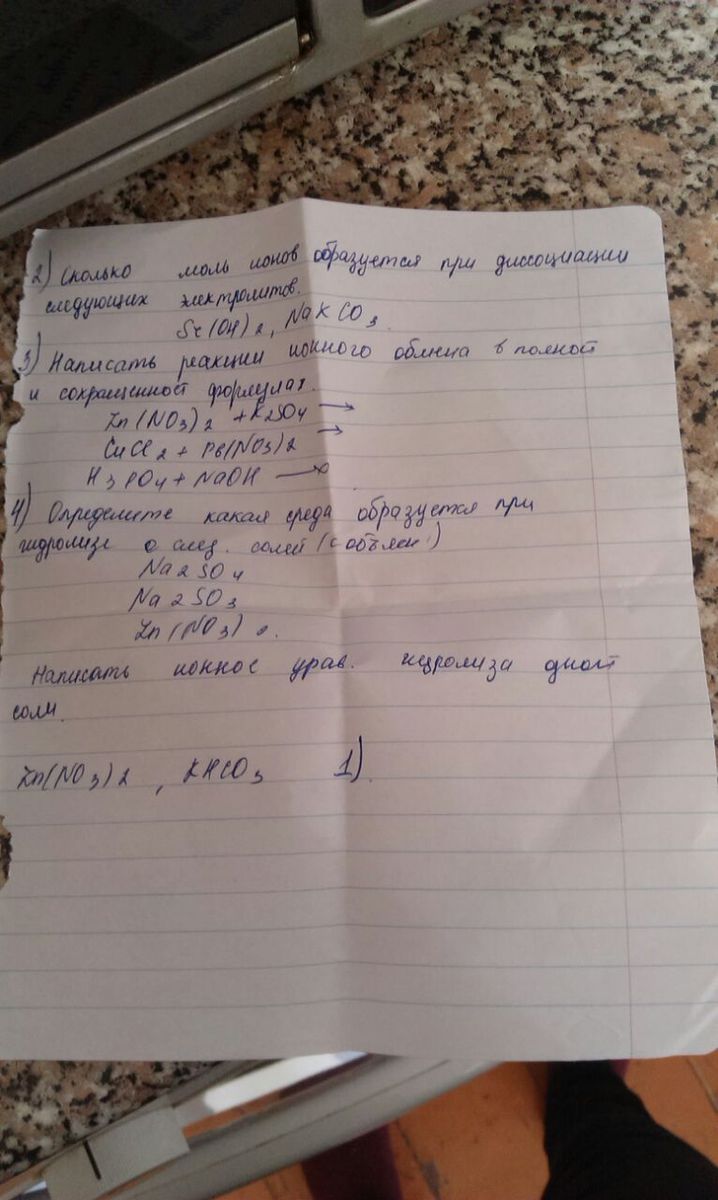 2) Сколько моль ионов образуется при диссоциации
следующих электролитов.
Sr(OH)2, NaKCO3.
3) Написать реакции ионного обмена в полной
и сокращенной формулах.
Zn(NO3)2 + K2SO4 →
CuCl2 + Pb(NO3)2 →
H3PO4 + NaOH →
4) Определите какая среда образуется при
гидролизе след. солей (с объясн.)
Na2SO4
Na2SO3
Zn(NO3)2.
Написать ионное урав. гидролиза одной
соли.
Zn(NO3)2, KHCO3 1).